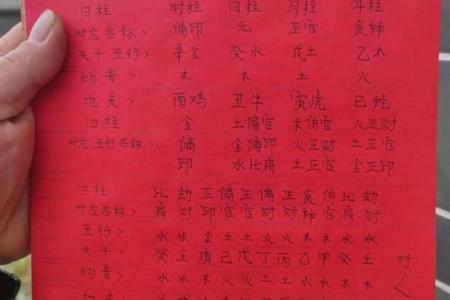 日柱 时柱 日柱 月柱 年柱
对应名称> 偏印 元 正官 食神
天干五行> 辛金 癸水 戊土 乙木
纳音> 木 木 土 火
地支> 酉鸡 丑牛 寅虎 巳蛇
日柱 金 土偏官 木伤官 火正财
对应五行名称> 金 金偏印 火正财 土正官
印 水比肩 土正官 金正印
日柱 比 劫 正 偏 正 偏 正 食 伤 比 劫
对应名称> 肩 财 印 官 官 财 财 神 官 肩 财
五行> 水 水 金 土 土 火 火 木 木 水 水
天干> 癸 壬 庚 己 戊 丁 丙 乙 甲 癸 壬 时
纳音> 木 木 土 土 火 火 水 水